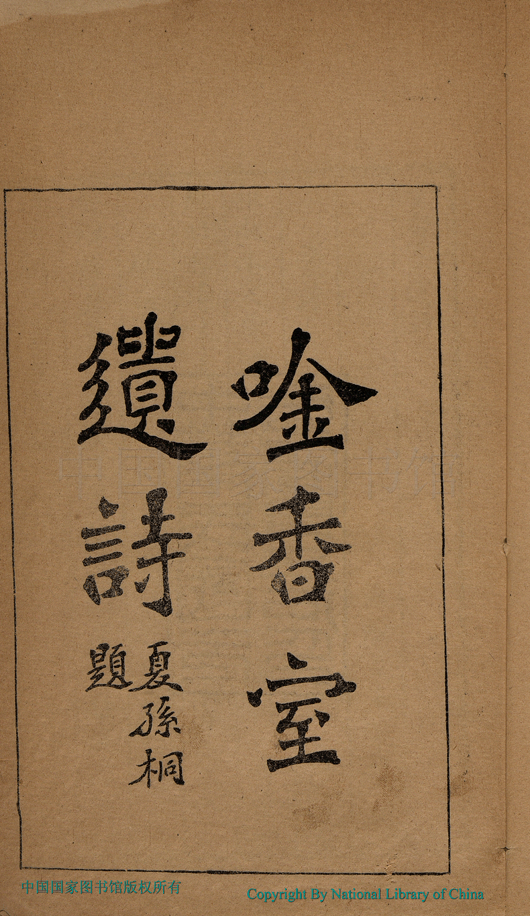 唫香室
遺詩
夏孫桐
題
中国国家图书馆
中国国家图书馆版权所有
Copyright By National Library of China